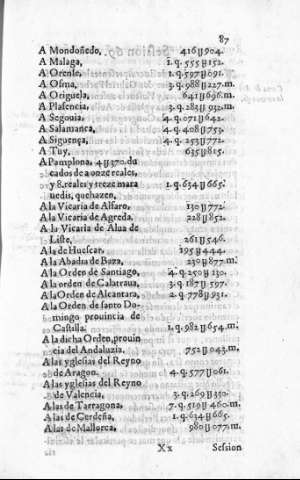 87
A Mondoñedo, 416ȣ904.
A Malaga, 1.q.555ȣ152.
A Orense, 1.q.597ȣ091.
A Osma, 3.q.988ȣ227.m
A Origuela, 641ȣ696.m
A Plasencia, 3.q.283ȣ932.m
A Segouia, 4.q.071ȣ642.
A Salamanca, 4.q.408ȣ753.
A Siguença, 4.q.253ȣ772.
A Tuy, 635ȣ815.
A Pamplona, 4ȣ370.du
cados de a onze reales,
y 8.reales y treze mara 1.q.634ȣ665.
uedis, que hazen,
A la Vicaria de Alfaro, 130ȣ772.
A la Vicaria de Agreda, 228ȣ852.
A la Vicaria de Alua de
Liste, 261ȣ546.
A la de Huescar, 195ȣ444.
A la Abadia de Baza, 239ȣ877.m
A la Orden de Santiago, 4.q.250ȣ130.
A la orden de Calatraua, 3.q.187ȣ597.
A la Orden de Alcantara, 2.q.778ȣ931.
A la Orden de santo Do-
mingo prouincia de
Castilla. 1.q.982ȣ654.m.
A la dicha Orden, prouin
cia del Andaluzia. 752ȣ043.m.
A las yglesias del Reyno
de Aragon. 4.q.577ȣ061.
A las yglesias del Reyno
de Valencia, 3.q.269ȣ350.
A las de Tarragona, 7.q.519ȣ460.m.
A las de Cerdeña, 1.q.634ȣ665.
A las de Mallorca, 980ȣ077.m.
Xx Session